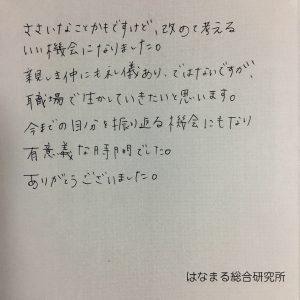 ささいなことかもですけど、改めて考える
いい機会になりました。
親しき仲にも礼儀あり、ではないですが、
職場で生かしていきたいと思います。
今までの自分を振り返る機会にもなり
有意義な時間でした。
ありがとうございました。
はなまる総合研究所